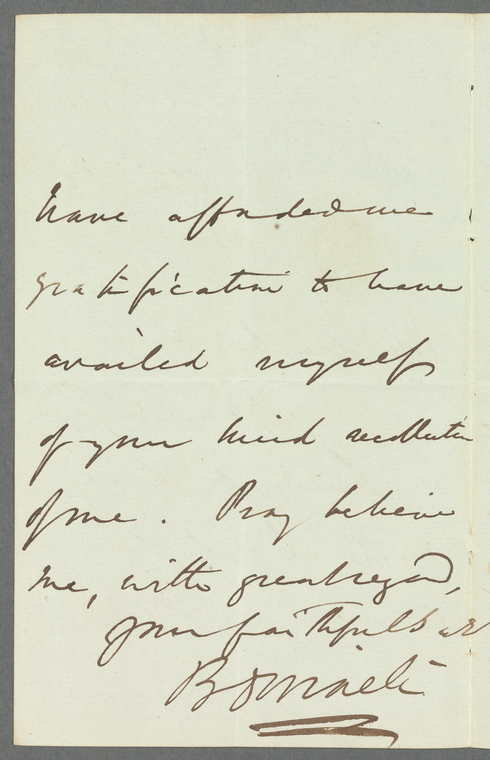 have afforded me
gratification to have
availed myself
of your kind recollection
of me. Pray believe
me, with great regard,
your faithful Sert
B Disraeli